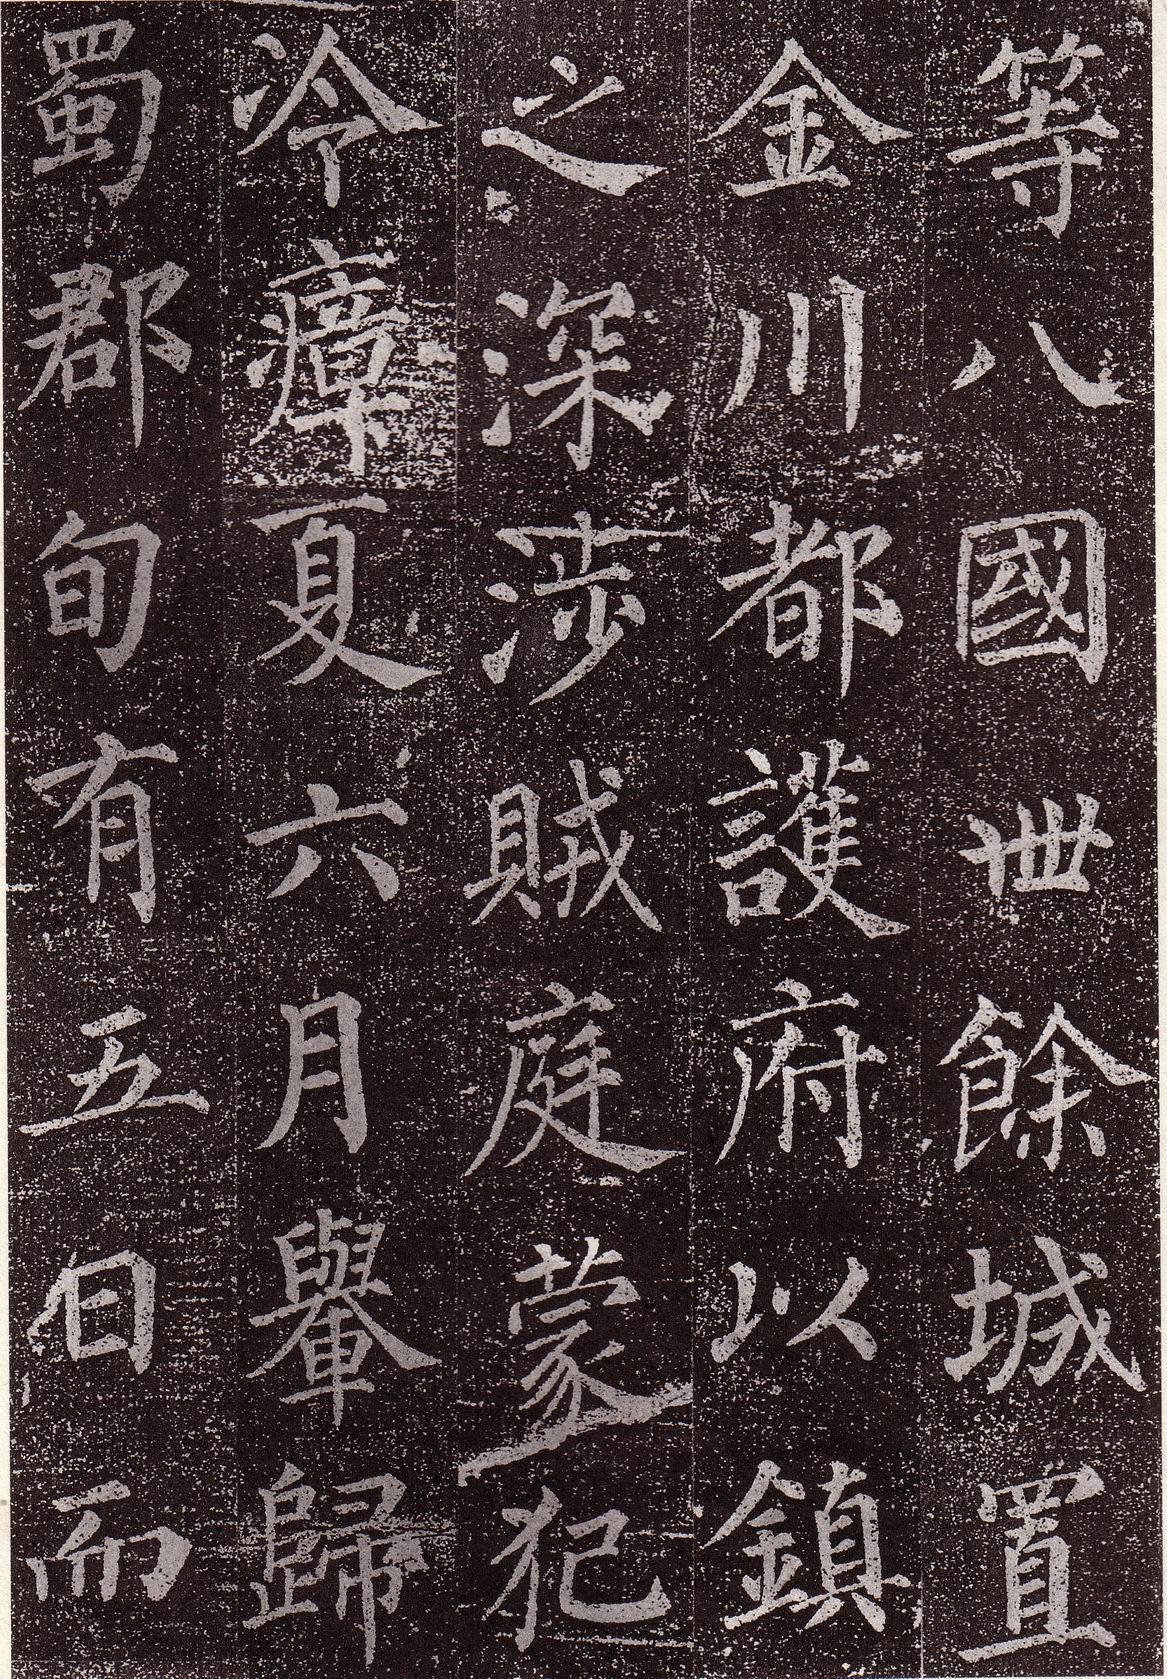 等八國丗餘城置
金川都護府以鎮
之深涉賊庭蒙犯
冷瘴夏六月轝歸
蜀郡旬有五日而